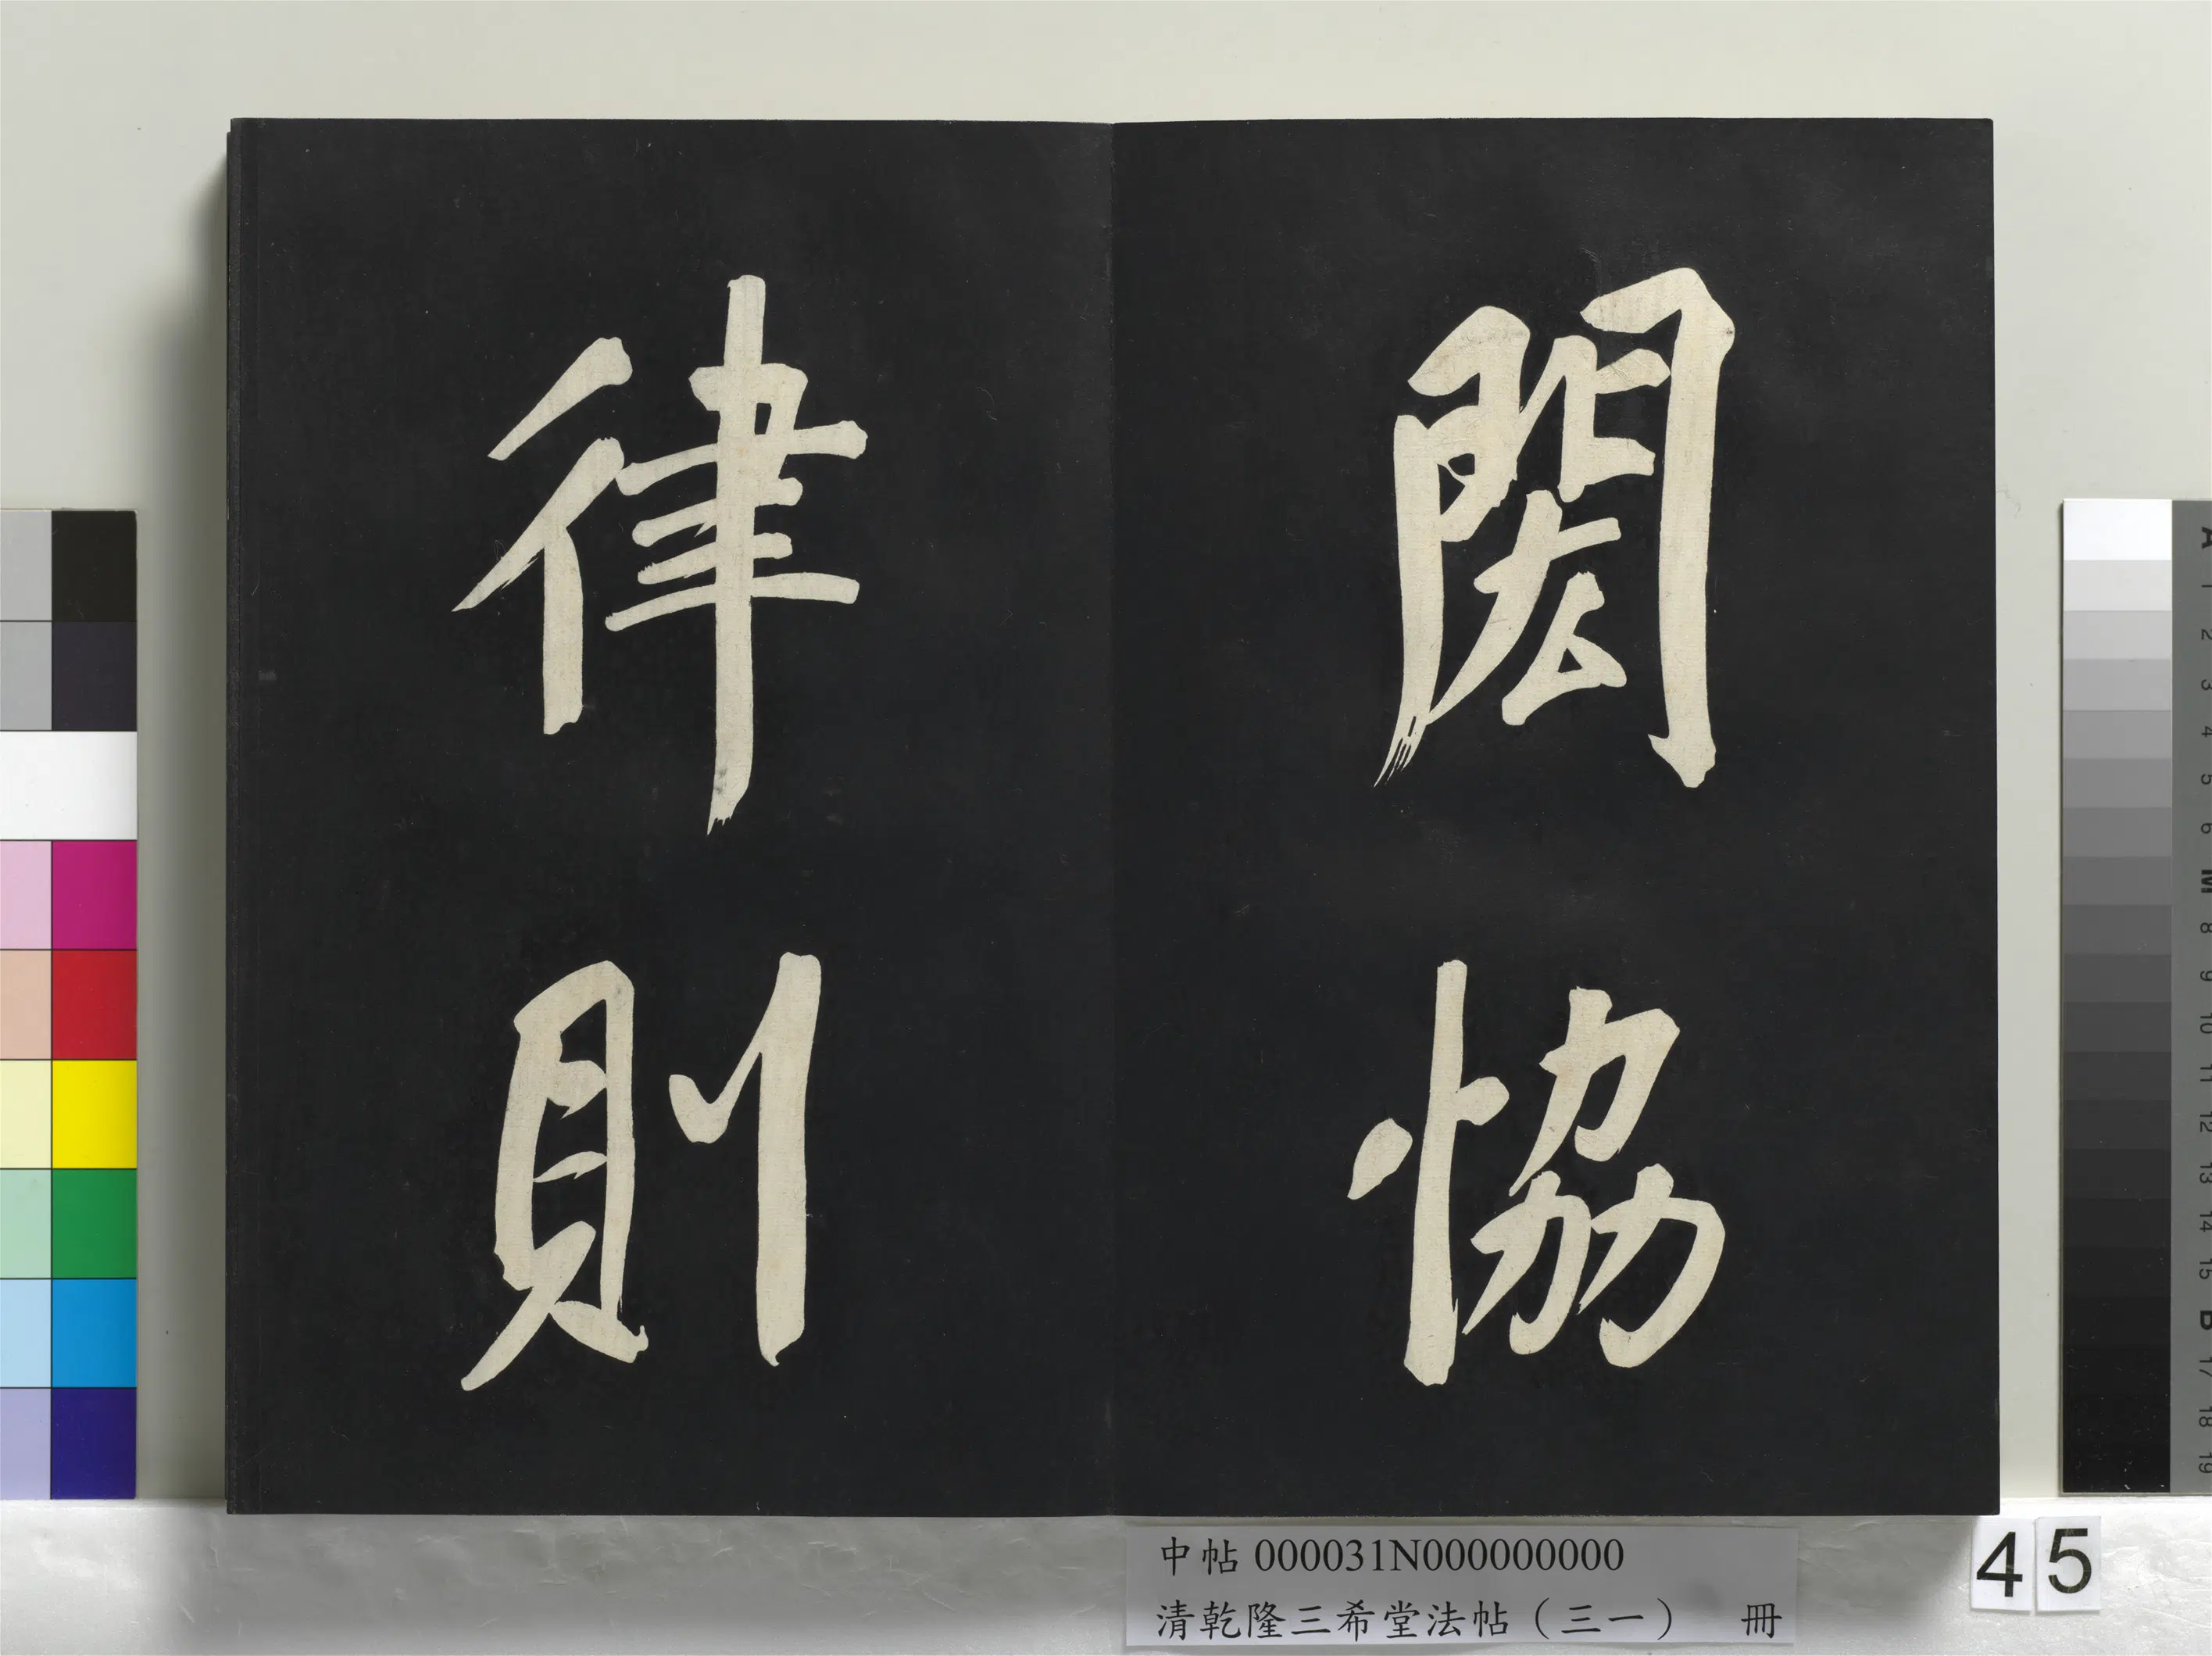 閎協
律則
中帖 000031N000000000
清乾隆三希堂法帖（三一） 冊
45
A
1
2
3
4
5
6
M
8
9
10
11
12
13
14
15
B
17
18
19